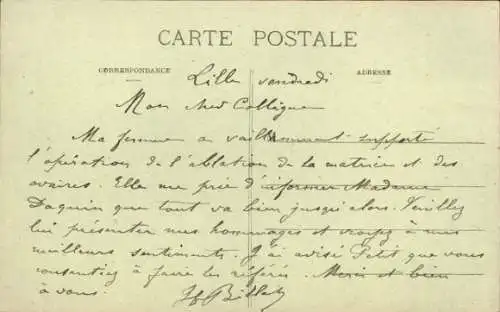 CARTE POSTALE
CORRESPONDANCE
ADRESSE
Lille vendredi
Mon cher Collègue
Ma femme a vaillamment supporté
l'opération de l'ablation de la matrice et des
ovaires. Elle me prie d'informer Madame
Daquin que tout va bien jusqu'alors. Veuillez
lui présenter mes hommages et croyez à mes
meilleurs sentiments. J'ai avisé Petit que vous
consentiez à faire les référés. Merci et bien
à vous.